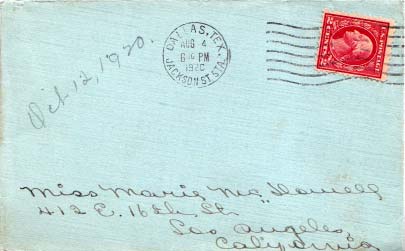 DALLAS, TEX.
AUG 4
6 PM
1920
JACKSON ST. STA.
Oct 12, 1920.
Miss Marie McDowell
412 E. 16th St.
Los Angeles,
California